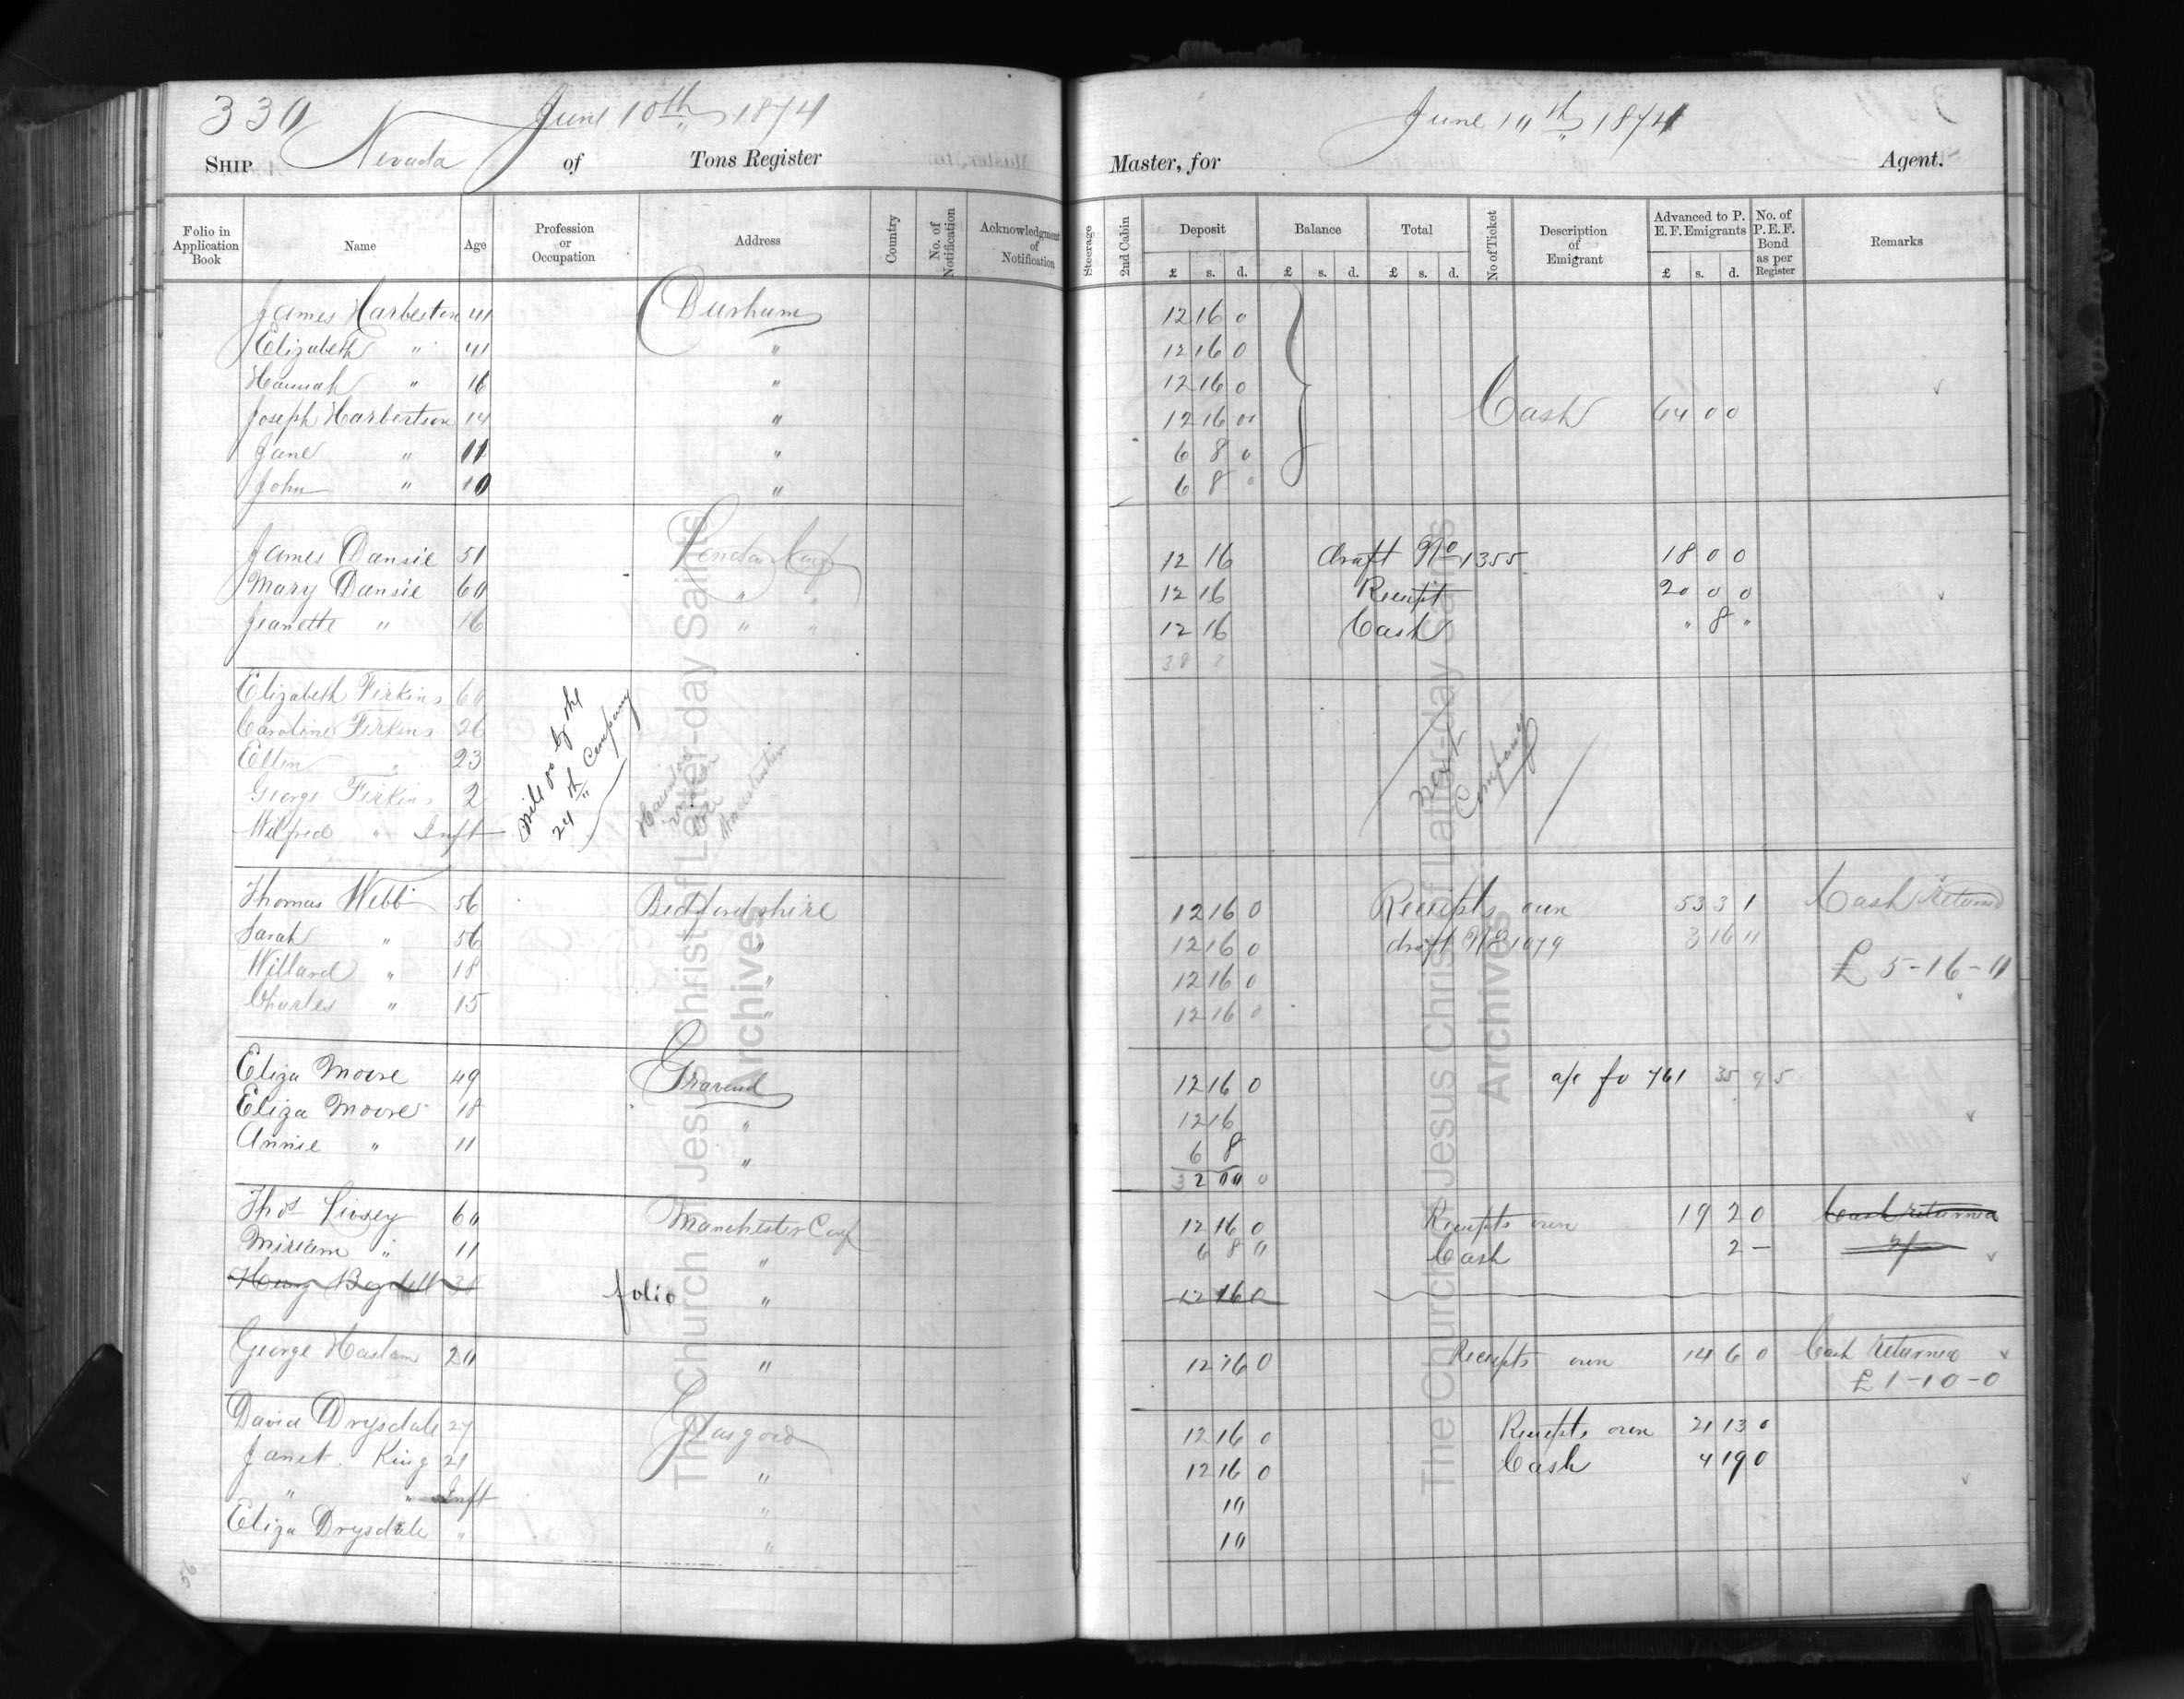 330 June 10th 1874
SHIP Nevada of Tons Register
Folio in Application Book Name Age Profession or Occupation Address Country No. of Notification Acknowledgment of Notification
James Harbeston 41 Durham
Elizabeth " 41 "
Hannah " 16 "
Joseph Harbertson 14 "
Jane " 11 "
John " 10 "
James Dansie 51 London Conf
Mary Dansie 60 " "
Jeanette " 16 " "
Elizabeth Firkins 60
Caroline Firkins 26
Ellen " 23
George Firkins 2
Wilfred " Inft
Will go by the
24th Company
Thomas Webb 56 Bedfordshire
Sarah " 56 "
Willard " 18 "
Charles " 15 "
Eliza Moore 49 Gravend
Eliza Moore 18 "
Annie " 11 "
Thos Livsey 60 Manchester Conf
Miriam " 11 "
folio "
George Haslam 20 "
David Drysdale 27 Glasgow
Janet King 21 "
" " Inft "
Eliza Drysdale " "
June 10th 1874
Master, for Agent.
Steerage 2nd Cabin Deposit Balance Total No of Ticket Description of Emigrant Advanced to P. E. F. Emigrants No. of P. E. F. Bond as per Register Remarks
£ s. d. £ s. d. £ s. d. £ s. d.
12 16 0
12 16 0
12 16 0
12 16 0 Cash 64 0 0
6 8 0
6 8 0
12 16 draft No 1355 18 0 0
12 16 Receipt 20 0 0
12 16 Cash " 8 "
38 8
next
Company
12 16 0 Receipts own 53 3 1 Cash returned
12 16 0 draft No 1079 3 16 11
12 16 0 £ 5-16-0
12 16 0
12 16 0 a/c fo 761 35 9 5
12 16
6 8
32 00 0
12 16 0 Receipts own 19 2 0 Cash returned
6 8 0 Cash 2 —
12 16 0
12 16 0 Receipts own 14 6 0 Cash returned
£ 1-10-0
12 16 0 Receipts own 21 13 0
12 16 0 Cash 4 19 0
10
10
The Church of Jesus Christ of Latter-day Saints
Archives
The Church of Jesus Christ of Latter-day Saints
Archives